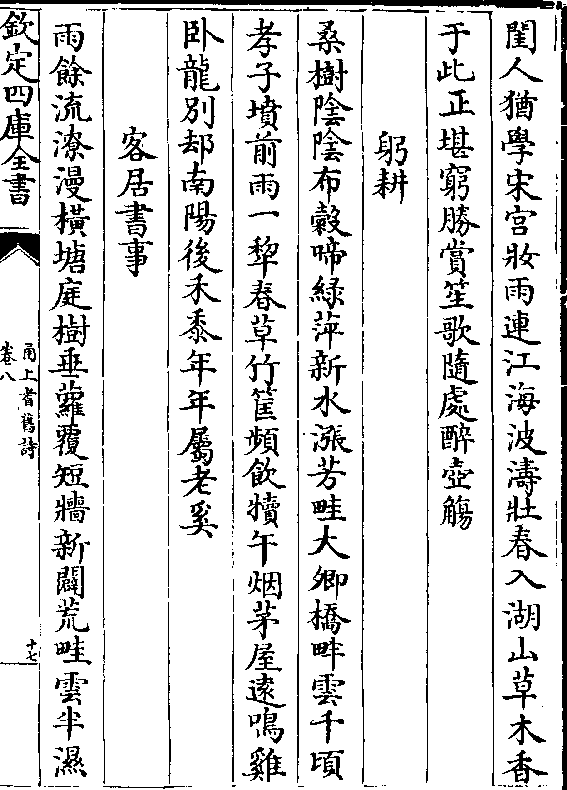 閨人猶學宋宫妝雨連江海波濤壯春入湖山草木香
于此正堪窮勝賞笙歌隨處醉壺觴
躬耕
桑樹陰陰布穀啼綠萍新水漲芳畦大卿橋畔雲千頃
孝子墳前雨一犂春草竹筐頻飲犢午烟茅屋遠鳴雞
卧龍别却南陽後禾黍年年屬老奚
客居書事
雨餘流潦漫橫塘庭樹垂蘿覆短牆新闢荒畦雲半濕
欽定四庫全書
甬上耆舊詩
卷八
十七